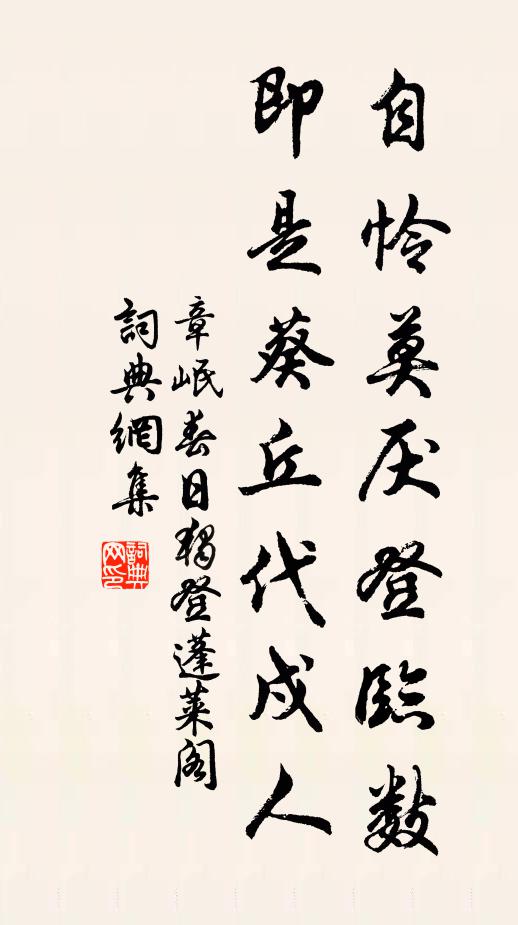 自怜莫厌登臨數
即是葵丘代戍人
章岷春日獨登蓬萊阁
詞典網集
詞典网印